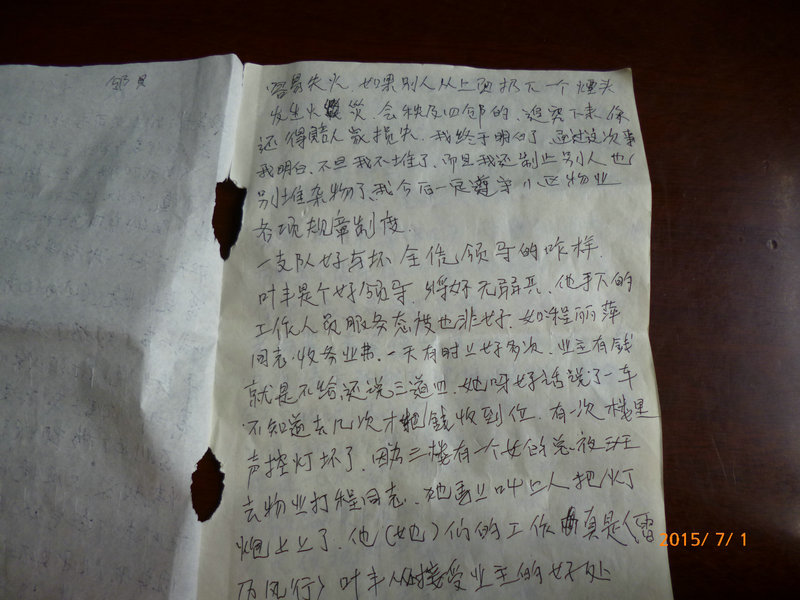 容易失火,如果别人从上面扔下一个烟头
发生火灾,会秧及四邻的,追究下来你
还得赔人家损失,我终于明白了,通过这次事
我明白,不但我不堆了,而且我还制止别人也
别堆杂物了,我今后一定遵守小区物业
各项规章制度.
一支队好与坏全凭领导的咋样.
叶丰是个好领导,将好无弱兵,他手下的
工作人员服务态度也非好,如程丽萍
同志,收务业费,一天有时上好多次,业主有钱
就是不给还说三道四,她呀好话说了一车
不知道去几次才把钱收到位,有一次楼里
声控灯坏了,因为三楼有一个女的总夜班
去物业打程同志,她马上叫上人把灯
炮上上了,他(她)们的工作真是(雷
厉风行)叶丰从接受业主的好处
2015/ 7/ 1